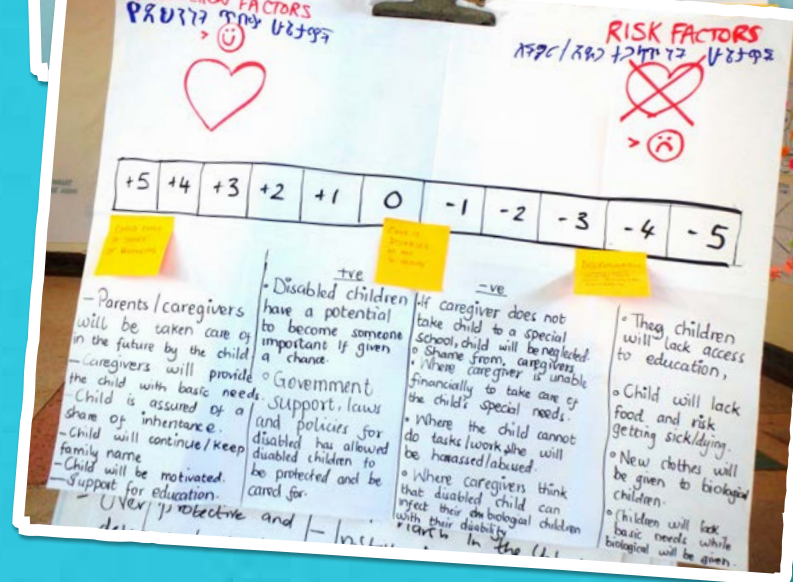 FACTORS
RISK FACTORS
+5 +4 +3 +2 +1 0 -1 -2 -3 -4 -5
- Parents / caregivers
will be taken care of
in the future by the child
- Caregivers will provide
the child with basic needs.
- Child is assured of a
share of inheritence.
- Child will continue / keep
family name
- Child will be motivated.
- Support for education.
+ve
• Disabled children
have a potential
to become someone
important If given
a chance.
• Government
support, laws
and policies for
disabled has allowed
disabled children to
be protected and be
cared for.
-ve
• If caregiver does not
take child to a special
school, child will be neglected.
• Shame from, caregivers
• Where caregiver is unable
financially to take care of
the child's special needs.
• Where the child cannot
do tasks/work, she will
be harassed/abused.
• Where caregivers think
that disabled child can
infect their biological children
with their disability
• They children
will lack access
to education,
• Child will lack
food and risk
getting sick/dying.
• New clothes will
be given to biological
children.
• Children will lack
basic needs while
biological will be given.
- Over protective and
in the